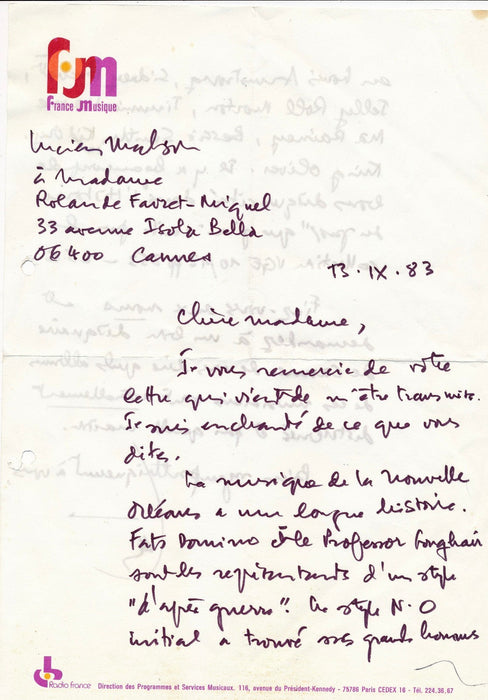 fm
France Musique
Lucien Malson
à Madame
Rolande Favret-Miquel
33 avenue Isola Bella
06400 Cannes
13.IX.83
Chère madame,
Je vous remercie de votre
lettre qui vient de m'être transmise.
Je suis enchanté de ce que vous
dites.
La musique de la Nouvelle
Orléans a une longue histoire.
Fats Domino et le Professor Longhair
sont les représentants d'un style
"d'après guerre". Le style N.O
initial a trouvé ses grands hommes
Radio france Direction des Programmes et Services Musicaux. 116, avenue du Président-Kennedy - 75786 Paris CEDEX 16 - Tél. 224.36.67